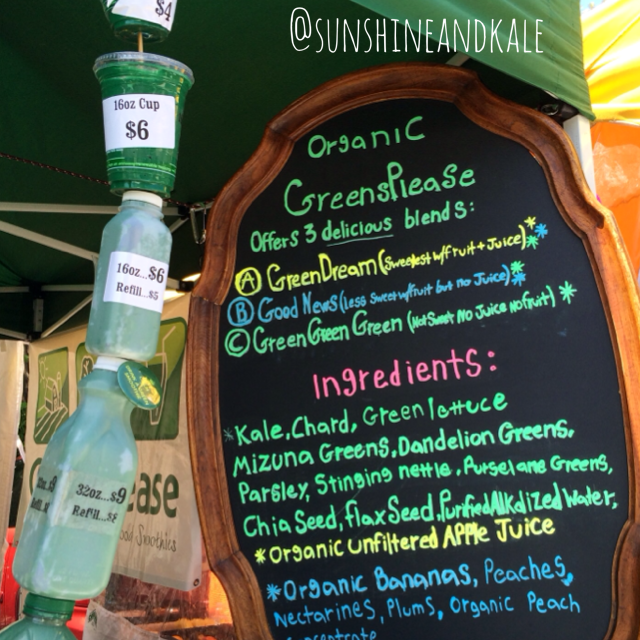 @SUNSHINEANDKALE
$4
16oz Cup
$6
16oz...$6
Refill...$5
32oz...$9
Refill...$8
ease
Smoothies
Organic
GreensPlease
Offers 3 delicious blends:
Ⓐ GreenDream (Sweetest w/fruit + Juice) **
Ⓑ Good News (Less Sweet w/fruit but no Juice) *
Ⓒ Green Green Green (Not Sweet No Juice No fruit) *
Ingredients:
*Kale, Chard, Green lettuce
Mizuna Greens, Dandelion Greens,
Parsley, Stinging nettle, Purselane Greens,
Chia Seed, flax Seed, Purified Alkalized Water,
*Organic Unfiltered Apple Juice
*Organic Bananas, Peaches,
Nectarines, Plums, Organic Peach
Concentrate